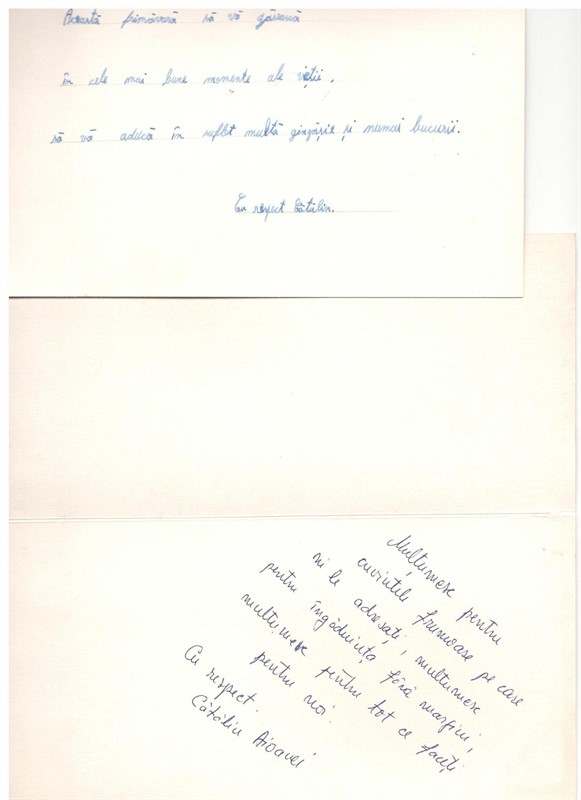 Această primăvară să vă găsească
în cele mai bune momente ale vieții,
să vă aducă în suflet multă gingășie și numai bucurii.
Cu respect Cătălin.
Mulțumesc pentru
cuvintele frumoase pe care
ni le adresați, multumesc
pentru îngăduința fără margini,
multumesc pentru tot ce faceți
pentru noi.
Cu respect.
Cătălin Aioanei